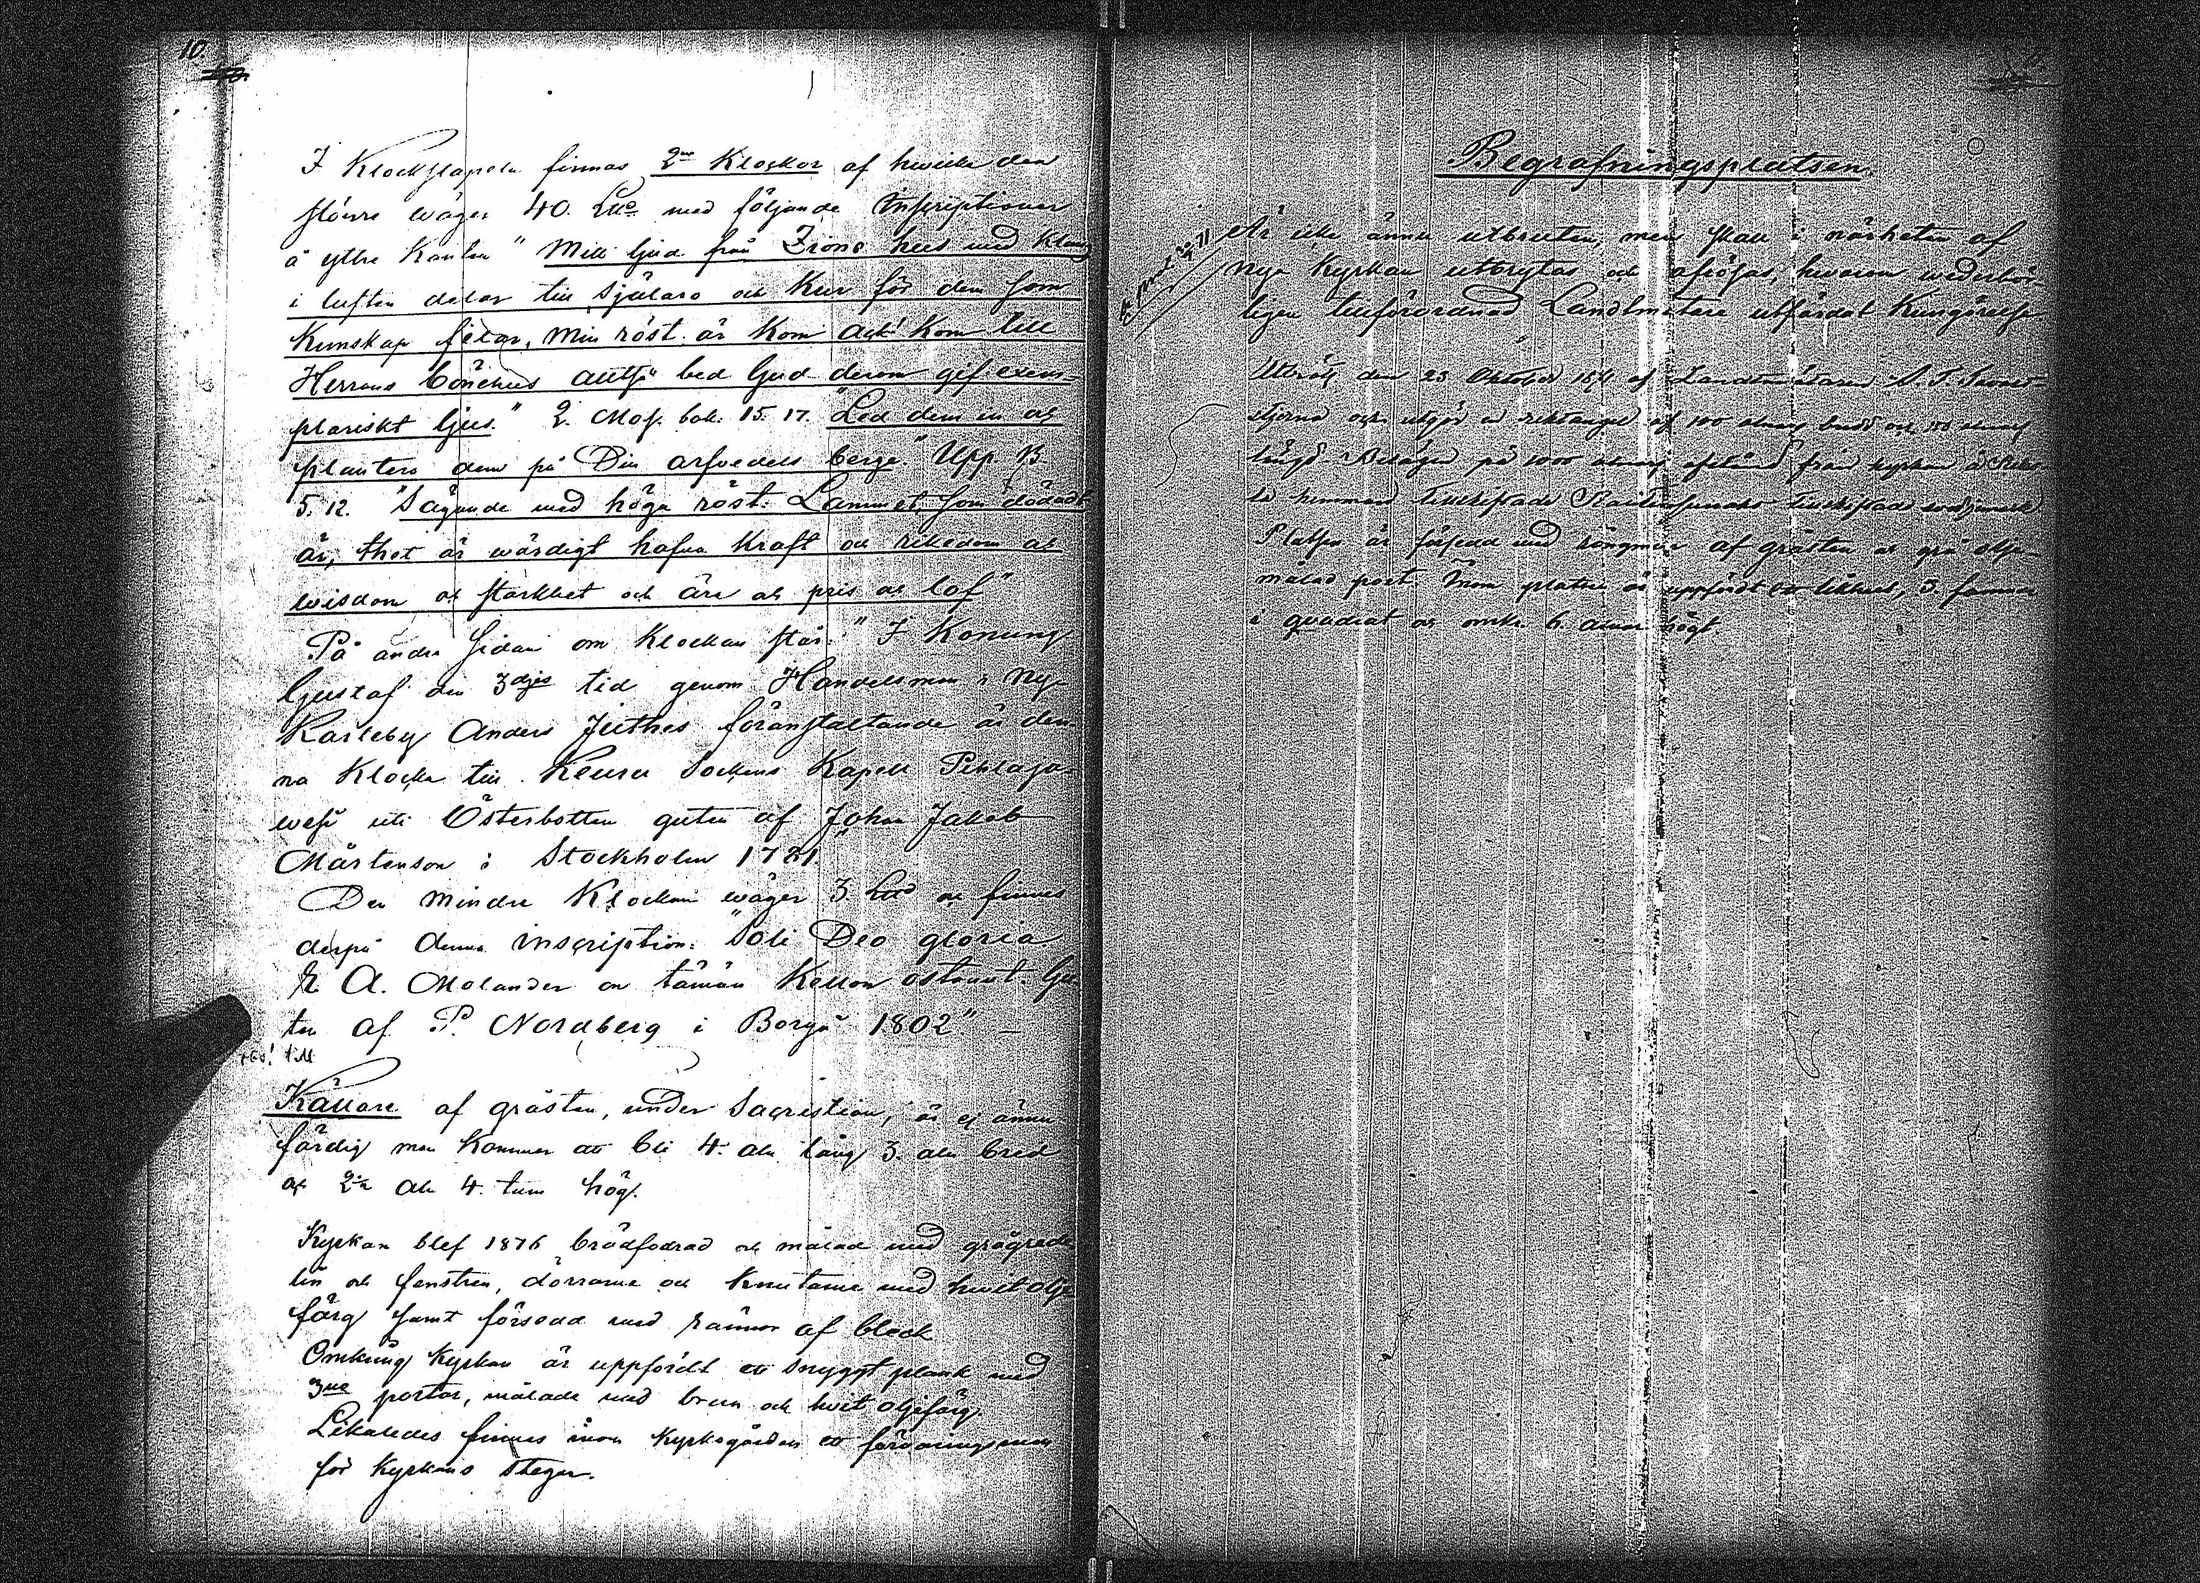 10.
I Klockstapeln finnas 2ne Klockor af hwilka den
större wäger 40. med följande Inscriptioner
å yttre Kanten "Mitt ljud från Zions hus med Klang
i luften delar till Själaro och Kur för dem som
Kunskap felar, Min röst är Kom ack! Kom till
Herrans Bönehus alltså bed Gud derom gif exem-
plariskt ljus." 2. Mos. bok. 15. 17. "Led dem in och
plantera dem på Din arfvedels berge." Upp. B
5. 12. "Sägande med höga röst: Lammet, som dödadt
är, thet är wärdigt hafva Kraft och rikedom och
wisdom och starkhet och äre och pris och lof"
På andra sidan om Klockan står: "I Konung
Gustaf den 3djes tid genom Handelsman i Nya
Karleby Anders Juthes föranstaltande är den-
na Klocka till Keuru Sockens Kapell Pihlaja-
wesi uti Österbotten guten af Johan Jakob
Mårtenson i Stockholm 1781
Den mindre Klockan wäger 3 och finnes
derpå denna inscription: "Soli Deo gloria
E. A. Molander on tämän Kellon ostanut. Gu-
ten af P. Nordberg i Borgå 1802."
Källare af gråsten, under Sacristian, är ej ännu
färdig men Kommer att bli 4. aln lång 3. aln bred
och 2ne aln 4. tum hög.
Kyrkan blef 1876 brädfodrad och målad med grågrede
lin och fenstren, dörrarne och Knutarne med hvit olje
färg samt försedd med rännor af bleck
Omkring Kyrkan är uppfördt ett snyggt plank med
3ne portar, målade med brun och hvit oljefärg.
Likaledes finnes inom Kyrkogården ett förvaringsrum
för Kyrkans stegar.
Begrafningsplatsen.
Är icke ännu utbruten, men skall i närheten af
nya Kyrkan utbrytas och afröjas, hwarom wederbör-
ligen tillförordnad Landtmätare utfärdat Kungörelse
Utbröts den 23 Oktober 1871 af Landtmätaren
och utgör en rektangel af 100 alnars bredd och alnars
längd Belägen på 1000 alnars afstånd från kyrkan å
hemman tillskiftade
Platsen är försedd med ringmur af gråsten och grå olje-
målad port. Inom platsen är uppfördt ett likhus, 3. famnar
i quadrat och omkr. 6. alnar högt